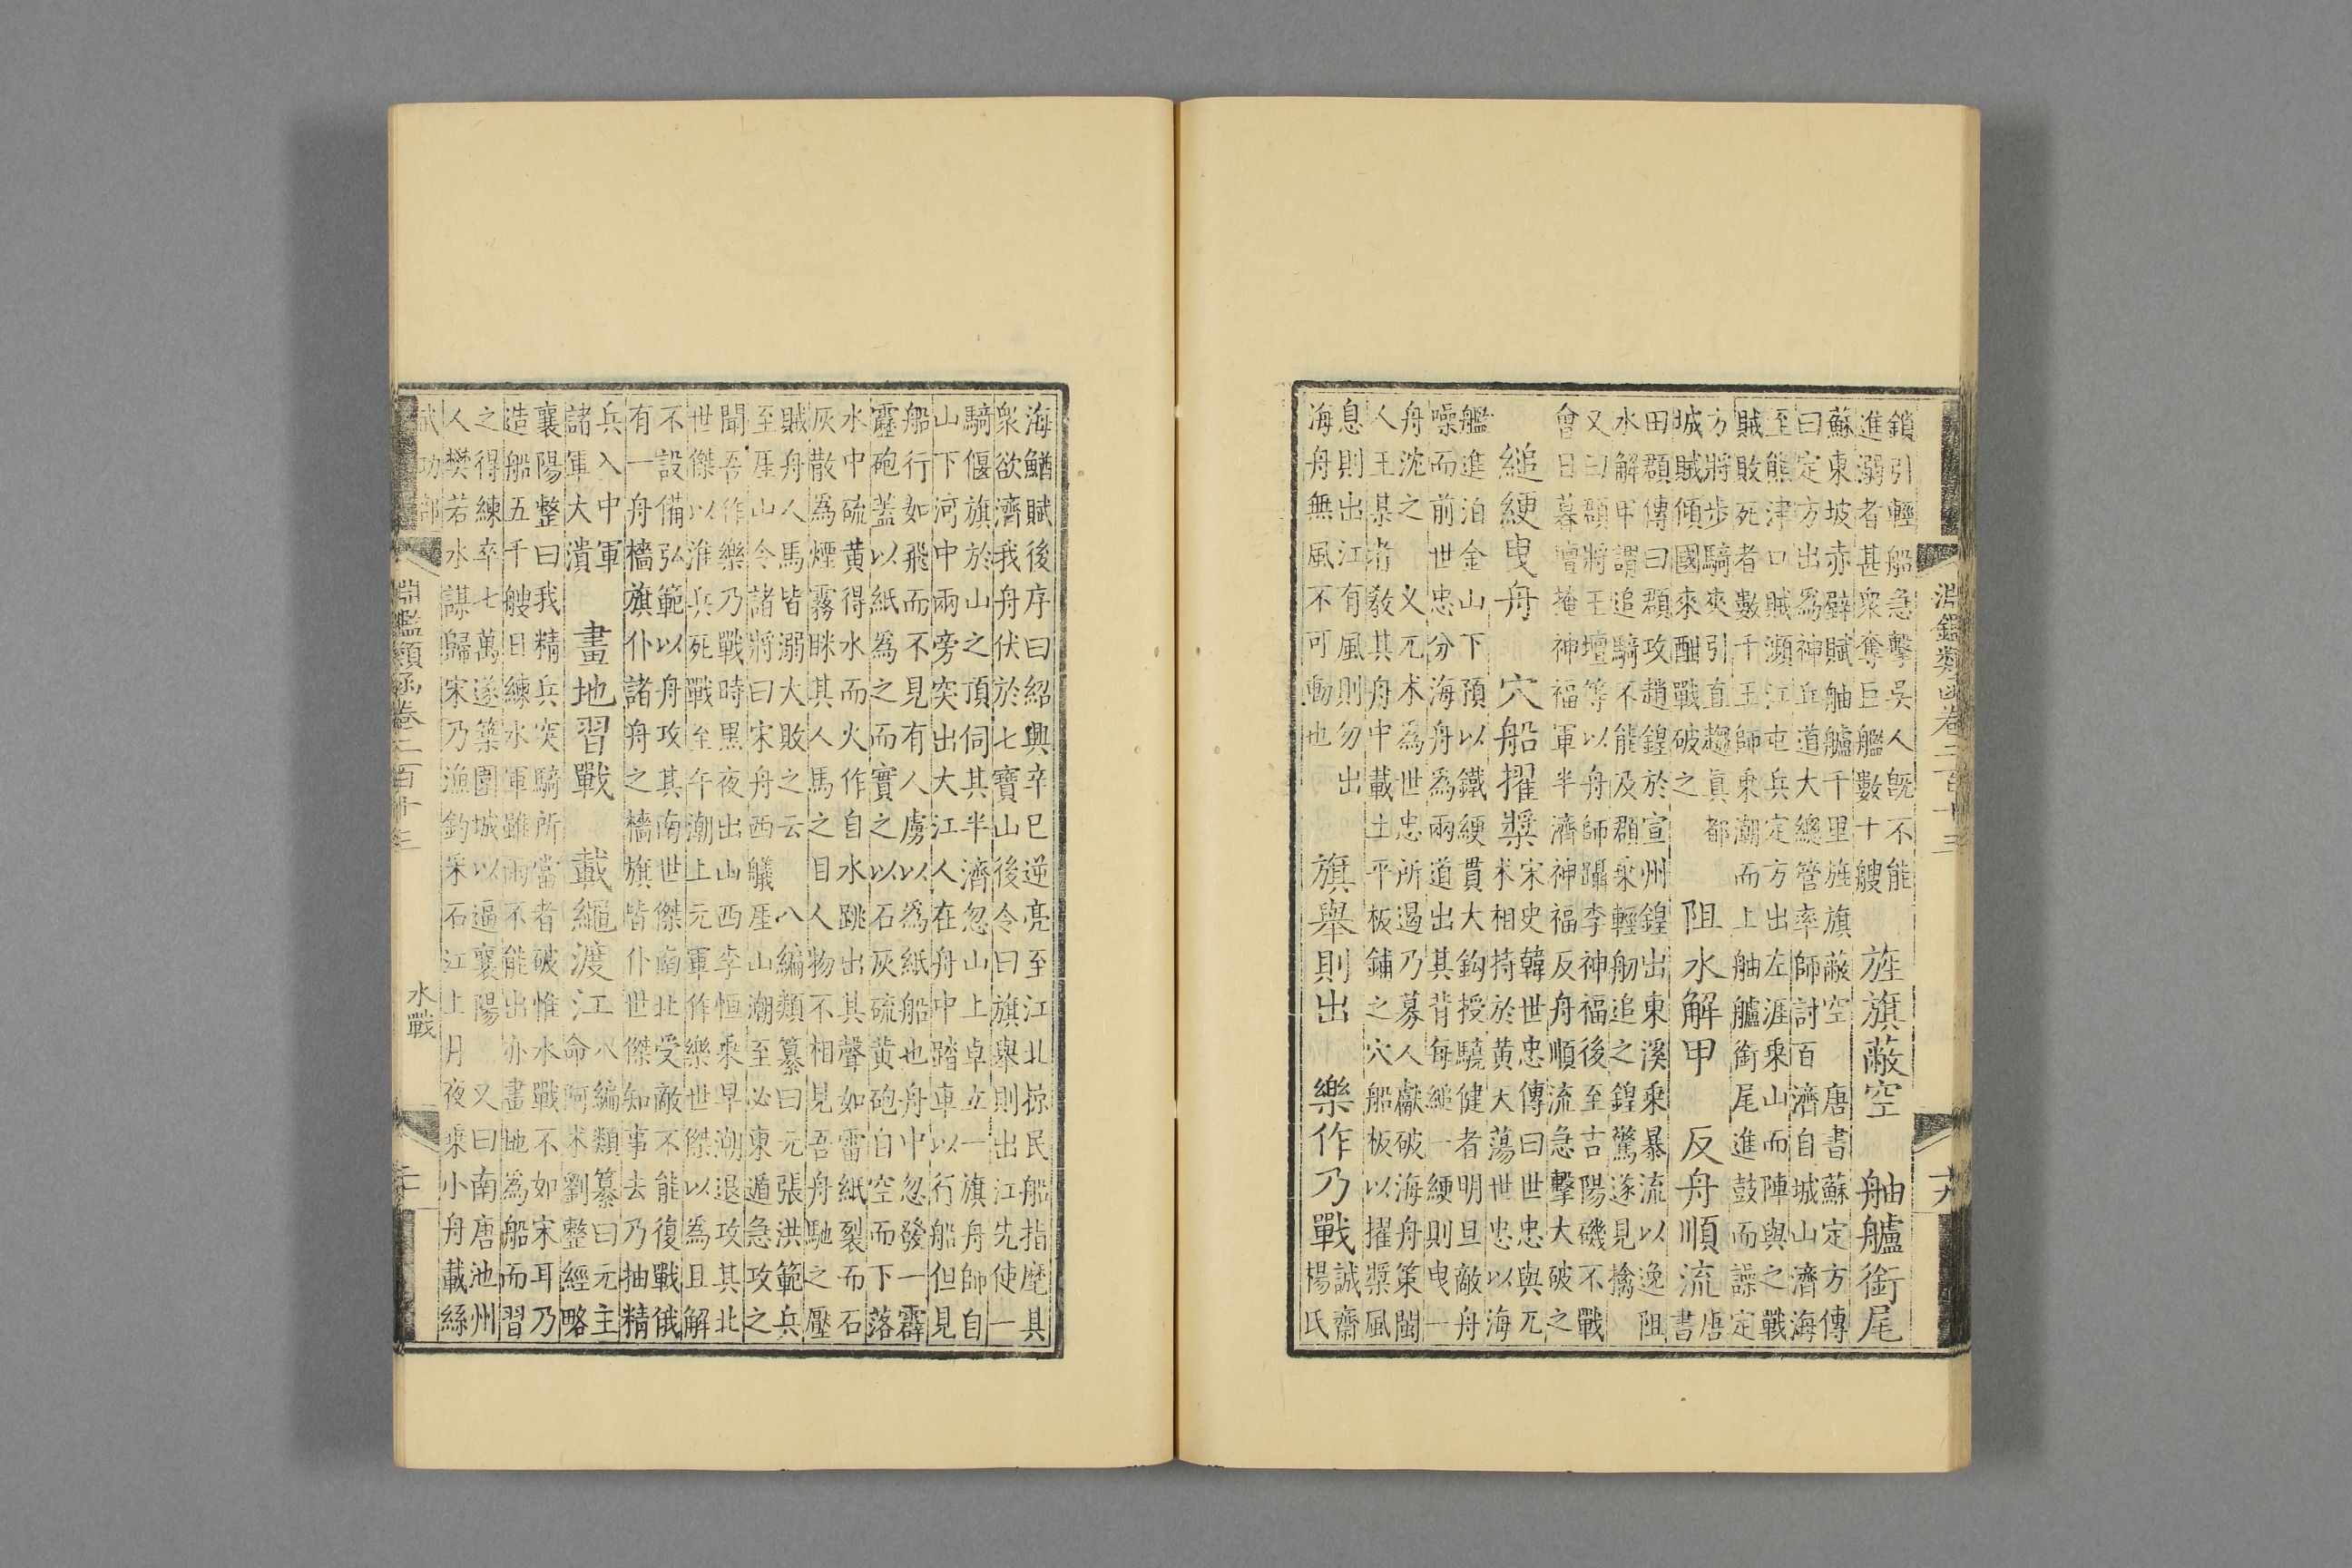 淵鑑類函卷二百十三
鎖引輕船急擊吳人旣不能
進溺者甚眾奪巨艦數十艘
旌旗蔽空 舳艫銜尾
蘇東坡赤壁賦舳艫千里旌旗蔽空 唐書蘇定方傳
曰定方出為神丘道大總管率師討百濟自城山濟海
至熊津口賊瀕江屯兵定方出左涯乘山而陣與之戰
賊敗死者數千王師乘潮而上舳艫銜尾進鼓而譟定
方將步騎夾引直趨真都
城賊傾國來酣戰破之
阻水解甲 反舟順流
唐
書
田頵傳曰頵攻趙鍠於宣州鍠出東溪乘暴流以逸阻
水解甲謂追騎不能及頵乘輕舠追之鍠驚遂見擒
又曰頵將王壇等以舟師躡李神福後至吉陽磯不戰
會日暮壇掩神福軍半濟神福反舟順流急擊大破之
縋綆曳舟 穴船擢槳
宋史韓世忠傳曰世忠與兀
朮相持於黃天蕩世忠以海
艦進泊金山下預以鐵綆貫大鈎授驍健者明旦敵舟
噪而前世忠分海舟為兩道出其背每縋一綆則曳一
舟沈之 又兀朮為世忠所遏乃募人獻破海舟策閩
人王某者教其舟中載土平板鋪之穴船板以擢槳風
息則出江有風則勿出
海舟無風不可動也
旗舉則出 樂作乃戰
誠齋
楊氏
海鰌賦後序曰紹興辛巳逆亮至江北掠民船指麾具
衆欲濟我舟伏於七寶山後令曰旗舉則出江先使一
騎偃旗於山之頂伺其半濟忽山上卓立一旗舟師自
山下河中兩旁突出大江人在舟中踏車以行船但見
船行如飛而不見有人虜以為紙船也舟中忽發一霹
靂砲蓋以紙為之而實之以石灰硫黃砲自空而下落
水中硫黃得水而火作自水跳出其聲如雷紙裂而石
灰散為煙霧眯其人馬之目人物不相見吾舟馳之壓
賊舟人馬皆溺大敗之云 八編類纂曰元張洪範兵
至厓山今諸將曰宋舟西艤厓山潮至必東遁急攻之
聞吾作樂乃戰時黑夜出山西李恒乘早潮退攻其北
世傑以淮兵死戰至午潮上元軍作樂世傑以為且解
不設備弘範以舟攻其南世傑南北受敵不能復戰俄
有一舟檣旗仆諸舟之檣旗皆仆世傑知事去乃抽精
兵入中軍
諸軍大潰
畫地習戰 載繩渡江
八編類纂曰元主
命阿朮劉整經略
襄陽整曰我精兵突騎所當者破惟水戰不如宋耳乃
造船五千艘日練水軍雖雨不能出亦畫地為船而習
之得練卒七萬遂築圍城以逼襄陽 又曰南唐池州
人樊若水謀歸宋乃漁釣采石江上月夜乘小舟載絲
武功部
淵鑑類函卷二百十三
水戰